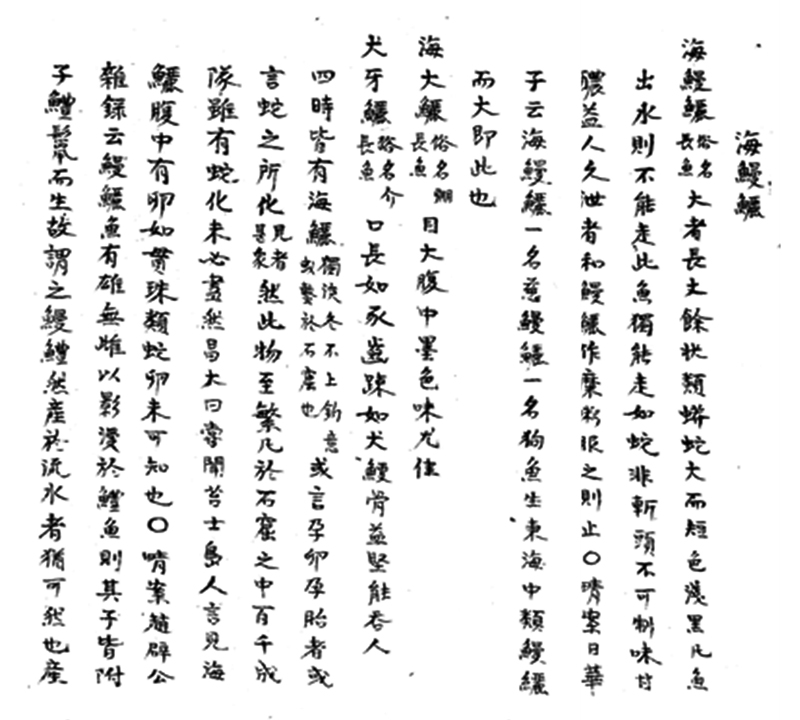 海鰻鱺
海鰻鱺俗名長魚大者長丈餘狀類蟒蛇大而短色淺黑凡魚
出水則不能走此魚獨能走如蛇非斬頭不可制味甘
醲益人久泄者和鰻鱺作糜粥服之則止〇晴案日華
子云海鰻鱺一名慈鰻鱺一名狗魚生東海中類鰻鱺
而大即此也
海大鱺俗名弸長魚目大腹中墨色味尤佳
犬牙鱺俗名介長魚口長如豕齒疎如犬鰻骨益堅能吞人
四時皆有海鱺獨深冬不上釣意或蟄於石窟也或言孕卵孕胎者或
言蛇之所化見者甚衆然此物至繁凡於石窟之中百千成
隊雖有蛇化未必盡然昌大曰嘗聞苔士島人言見海
鱺腹中有卵如貫珠類蛇卵未可知也〇晴案趙辟公
雜錄云鰻鱺魚有雄無雌以影漫於鱧魚則其子皆附
子鱧鬣而生故謂之鰻鱧然產於流水者猶可然也產